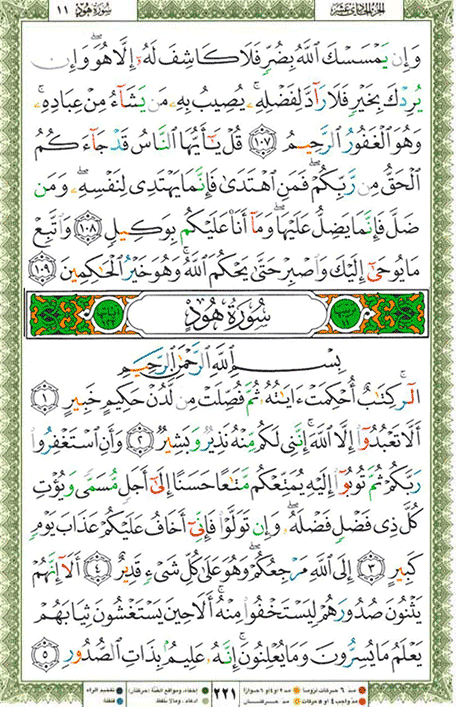 سُورَةُ هُودٍ ١١ الجزء الحادي عشر
وَإِن يَمْسَسْكَ ٱللَّهُ بِضُرٍّ فَلَا كَاشِفَ لَهُۥٓ إِلَّا هُوَ ۖ وَإِن
يُرِدْكَ بِخَيْرٍ فَلَا رَآدَّ لِفَضْلِهِۦ ۚ يُصِيبُ بِهِۦ مَن يَشَآءُ مِنْ عِبَادِهِۦ ۚ
وَهُوَ ٱلْغَفُورُ ٱلرَّحِيمُ ۝١٠٧ قُلْ يَٰٓأَيُّهَا ٱلنَّاسُ قَدْ جَآءَكُمُ
ٱلْحَقُّ مِن رَّبِّكُمْ ۖ فَمَنِ ٱهْتَدَىٰ فَإِنَّمَا يَهْتَدِى لِنَفْسِهِۦ ۖ وَمَن
ضَلَّ فَإِنَّمَا يَضِلُّ عَلَيْهَا ۖ وَمَآ أَنَا۠ عَلَيْكُم بِوَكِيلٍ ۝١٠٨ وَٱتَّبِعْ
مَا يُوحَىٰٓ إِلَيْكَ وَٱصْبِرْ حَتَّىٰ يَحْكُمَ ٱللَّهُ ۚ وَهُوَ خَيْرُ ٱلْحَٰكِمِينَ ۝١٠٩
سُورَةُ هُودٍ
بِسْمِ ٱللَّهِ ٱلرَّحْمَٰنِ ٱلرَّحِيمِ
الٓر ۚ كِتَٰبٌ أُحْكِمَتْ ءَايَٰتُهُۥ ثُمَّ فُصِّلَتْ مِن لَّدُنْ حَكِيمٍ خَبِيرٍ ۝١
أَلَّا تَعْبُدُوٓا۟ إِلَّا ٱللَّهَ ۚ إِنَّنِى لَكُم مِّنْهُ نَذِيرٌ وَبَشِيرٌ ۝٢ وَأَنِ ٱسْتَغْفِرُوا۟
رَبَّكُمْ ثُمَّ تُوبُوٓا۟ إِلَيْهِ يُمَتِّعْكُم مَّتَٰعًا حَسَنًا إِلَىٰٓ أَجَلٍ مُّسَمًّى وَيُؤْتِ
كُلَّ ذِى فَضْلٍ فَضْلَهُۥ ۖ وَإِن تَوَلَّوْا۟ فَإِنِّىٓ أَخَافُ عَلَيْكُمْ عَذَابَ يَوْمٍ
كَبِيرٍ ۝٣ إِلَى ٱللَّهِ مَرْجِعُكُمْ ۖ وَهُوَ عَلَىٰ كُلِّ شَىْءٍ قَدِيرٌ ۝٤ أَلَآ إِنَّهُمْ
يَثْنُونَ صُدُورَهُمْ لِيَسْتَخْفُوا۟ مِنْهُ ۚ أَلَا حِينَ يَسْتَغْشُونَ ثِيَابَهُمْ
يَعْلَمُ مَا يُسِرُّونَ وَمَا يُعْلِنُونَ ۚ إِنَّهُۥ عَلِيمٌۢ بِذَاتِ ٱلصُّدُورِ ۝٥
٢٢١